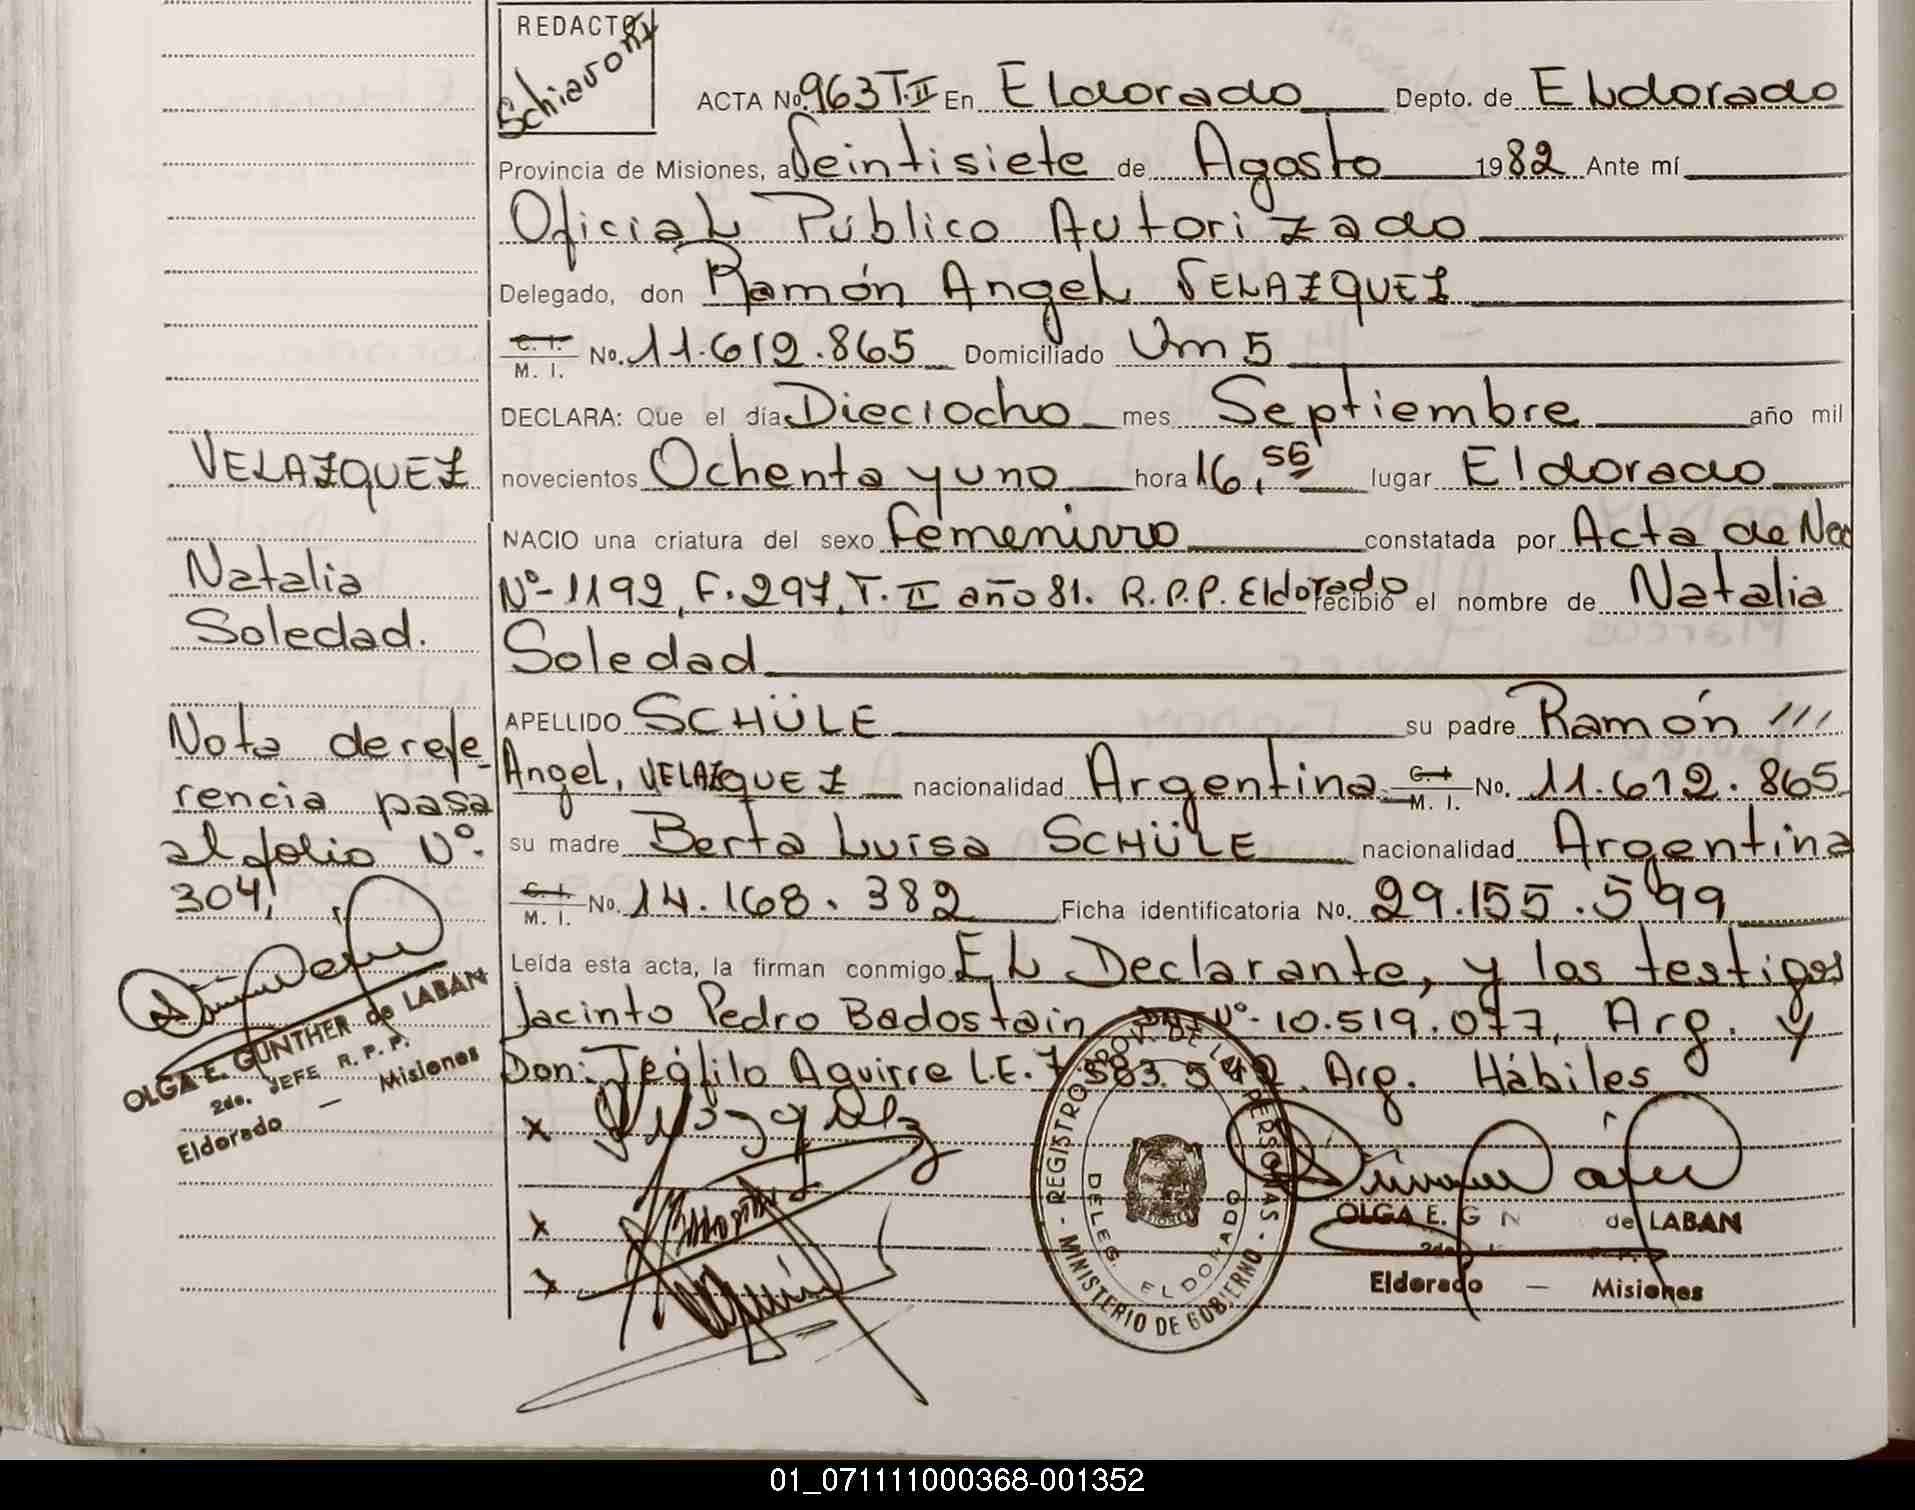 REDACTO
Schiavoni
ACTA No. 963 T.II En Eldorado Depto. de Eldorado
Provincia de Misiones, a Veintisiete de Agosto 1982 Ante mí
Oficial Público Autorizado
Delegado, don Ramón Angel VELAZQUEZ
C. I.
M. I. No. 11.612.865 Domiciliado Km 5
DECLARA: Que el día Dieciocho mes Septiembre año mil
novecientos Ochenta y uno hora 16,56 lugar Eldorado
NACIO una criatura del sexo Femenino constatada por Acta de Nac
Nº- 1192, F. 297, T. II año 81. R.P.P. Eldorado recibió el nombre de Natalia
Soledad
APELLIDO SCHÜLE su padre Ramón ///
Angel, VELAZQUEZ nacionalidad Argentina C. I. M. I. No. 11.612.865
su madre Berta Luisa SCHÜLE nacionalidad Argentina
C. I.
M. I. No. 14.168.382 Ficha identificatoria No. 29.155.599
Leída esta acta, la firman conmigo El Declarante, y los testigos
Jacinto Pedro Badostain Nº- 10.519.077, Arg. y
Don: Teófilo Aguirre L.E. 7.583.542. Arg. Hábiles
x Velazquez
x
x
VELAZQUEZ
Natalia
Soledad.
Nota de refe-
rencia pasa
al folio Nº.
304,
OLGA E. GUNTHER de LABAN
2do. JEFE R. P. P.
Eldorado — Misiones
REGISTRO PROV. DE LAS PERSONAS - MINISTERIO DE GOBIERNO -
DELEG. ELDORADO
OLGA E. G N de LABAN
2do.
Eldorado — Misiones
01_071111000368-001352